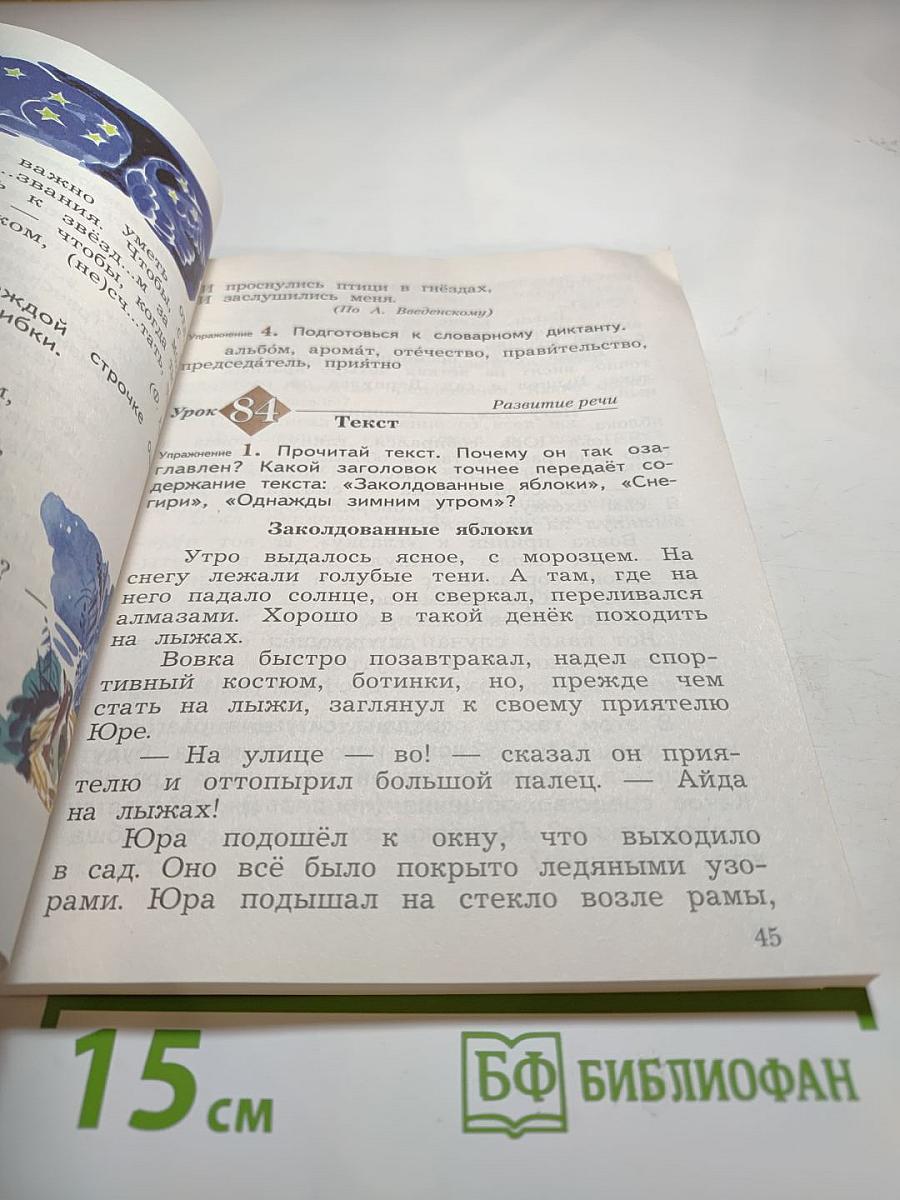 важно
...звания. уметь
к звёзд...м за
— чтобы, когда
(не)сч...тать,
строчке
И проснулись птицы в гнёздах,
И заслушились меня.
(По А. Введенскому)
Упражнение 4. Подготовься к словарному диктанту.
альбо́м, арома́т, оте́чество, прави́тельство,
председа́тель, прия́тно
Урок 84 Развитие речи
Текст
Упражнение 1. Прочитай текст. Почему он так оза-
главлен? Какой заголовок точнее передаёт со-
держание текста: «Заколдованные яблоки», «Сне-
гири», «Однажды зимним утром»?
Заколдованные яблоки
Утро выдалось ясное, с морозцем. На
снегу лежали голубые тени. А там, где на
него падало солнце, он сверкал, переливался
алмазами. Хорошо в такой денёк походить
на лыжах.
Вовка быстро позавтракал, надел спор-
тивный костюм, ботинки, но, прежде чем
стать на лыжи, заглянул к своему приятелю
Юре.
— На улице — во! — сказал он прия-
телю и оттопырил большой палец. — Айда
на лыжах!
Юра подошёл к окну, что выходило
в сад. Оно всё было покрыто ледяными узо-
рами. Юра подышал на стекло возле рамы,
45
15 см
БФ БИБЛИОФАН